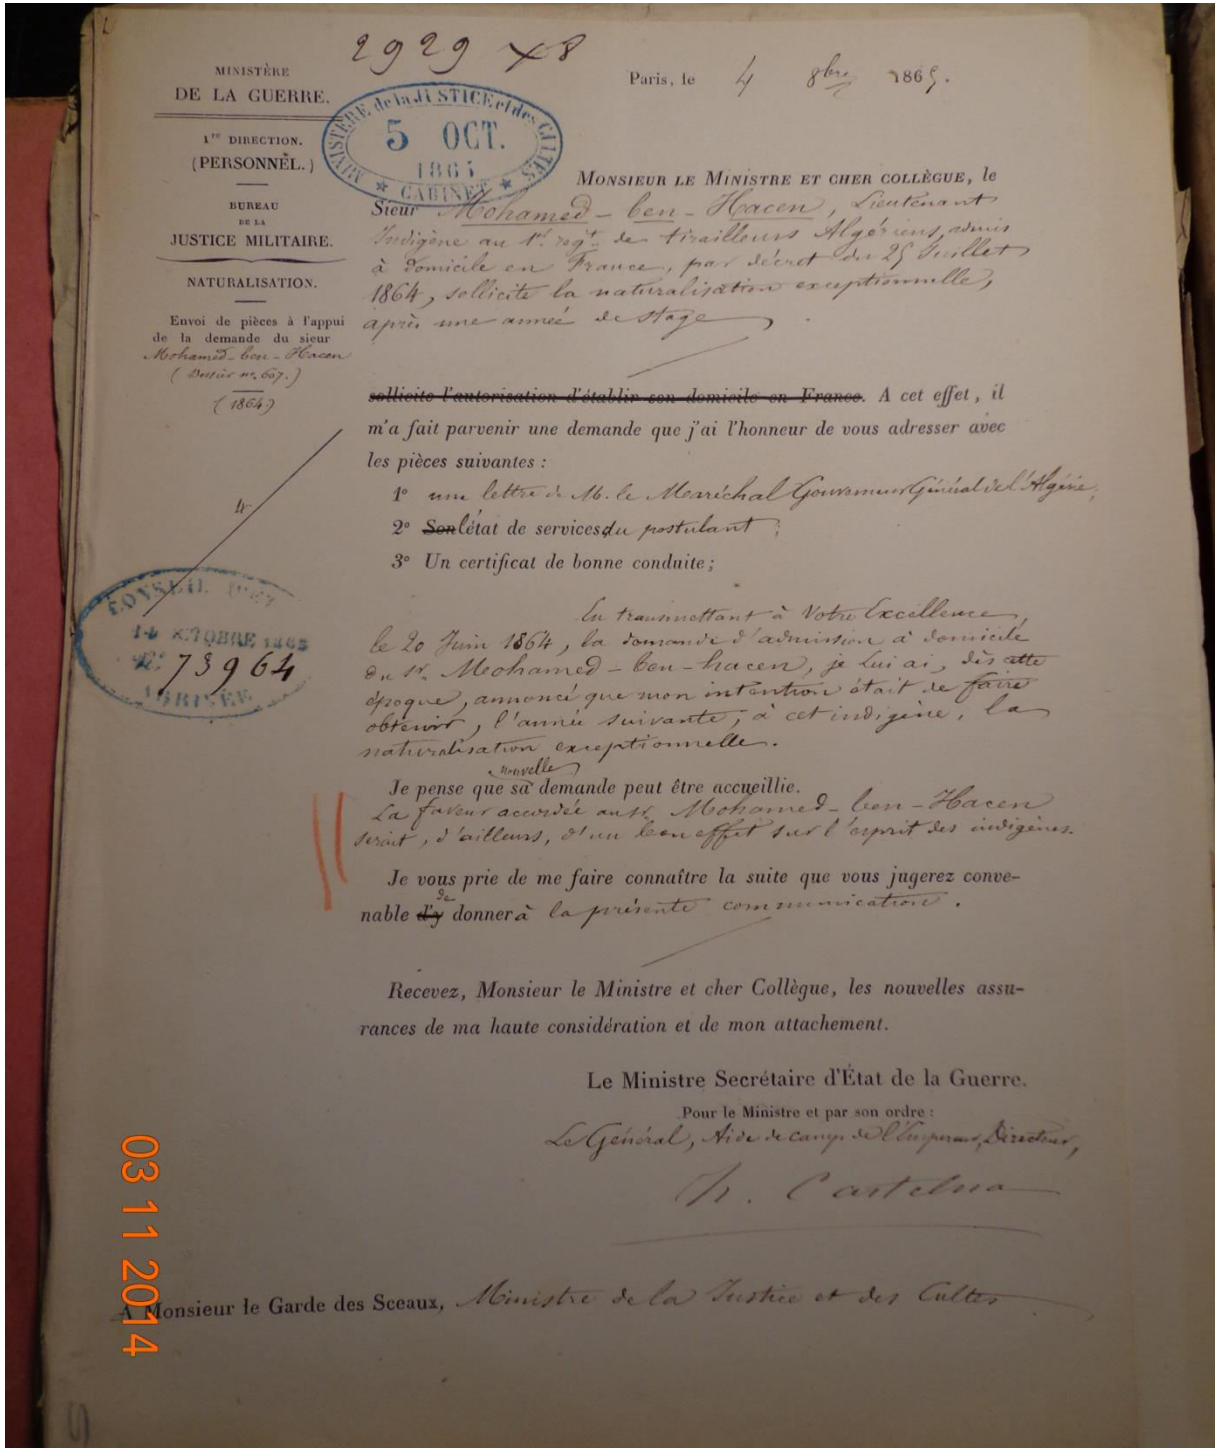 2929 X8
MINISTÈRE
DE LA GUERRE.
1re DIRECTION.
(PERSONNEL.)
BUREAU
DE LA
JUSTICE MILITAIRE.
NATURALISATION.
Envoi de pièces à l'appui
de la demande du sieur
Mohamed-ben-Hacen
(Dossier no. 607.)
(1864)
MINISTÈRE de la JUSTICE et des CULTES
5 OCT.
1865
CABINET
Paris, le 4 8bre 1865.
MONSIEUR LE MINISTRE ET CHER COLLÈGUE, le
Sieur Mohamed-ben-Hacen, Lieutenant
Indigène au 1er regt. de tirailleurs Algériens, admis
à domicile en France, par décret du 25 Juillet
1864, sollicite la naturalisation exceptionnelle,
après une année de stage.
sollicite l'autorisation d'établir son domicile en France. A cet effet, il
m'a fait parvenir une demande que j'ai l'honneur de vous adresser avec
les pièces suivantes :
1° une lettre de M. le Maréchal Gouverneur Général de l'Algérie,
2° Son l'état de services du postulant ;
3° Un certificat de bonne conduite ;
4
CONSEIL D'ET
14 OCTOBRE 1865
73964
En transmettant à Votre Excellence,
le 20 Juin 1864, la demande d'admission à domicile
du sr. Mohamed-ben-hacen, je lui ai, dès cette
époque, annoncé que mon intention était de faire
obtenir, l'année suivante, à cet indigène, la
naturalisation exceptionnelle.
nouvelle
Je pense que sa demande peut être accueillie.
La faveur accordée au sr. Mohamed-ben-Hacen
serait, d'ailleurs, d'un bon effet sur l'esprit des indigènes.
Je vous prie de me faire connaître la suite que vous jugerez conve-
de
nable d'y donner à la présente communication.
Recevez, Monsieur le Ministre et cher Collègue, les nouvelles assu-
rances de ma haute considération et de mon attachement.
Le Ministre Secrétaire d'État de la Guerre.
Pour le Ministre et par son ordre :
Le Général, Aide de camp de l'Empereur, Directeur,
Castelnau
A Monsieur le Garde des Sceaux, Ministre de la Justice et des Cultes
03 11 2014